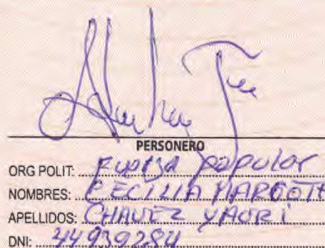 PERSONERO
ORG POLIT: Fuerza popular
NOMBRES: CECILIA MARGOTH
APELLIDOS: CHAVEZ YAURI
DNI: 44939284